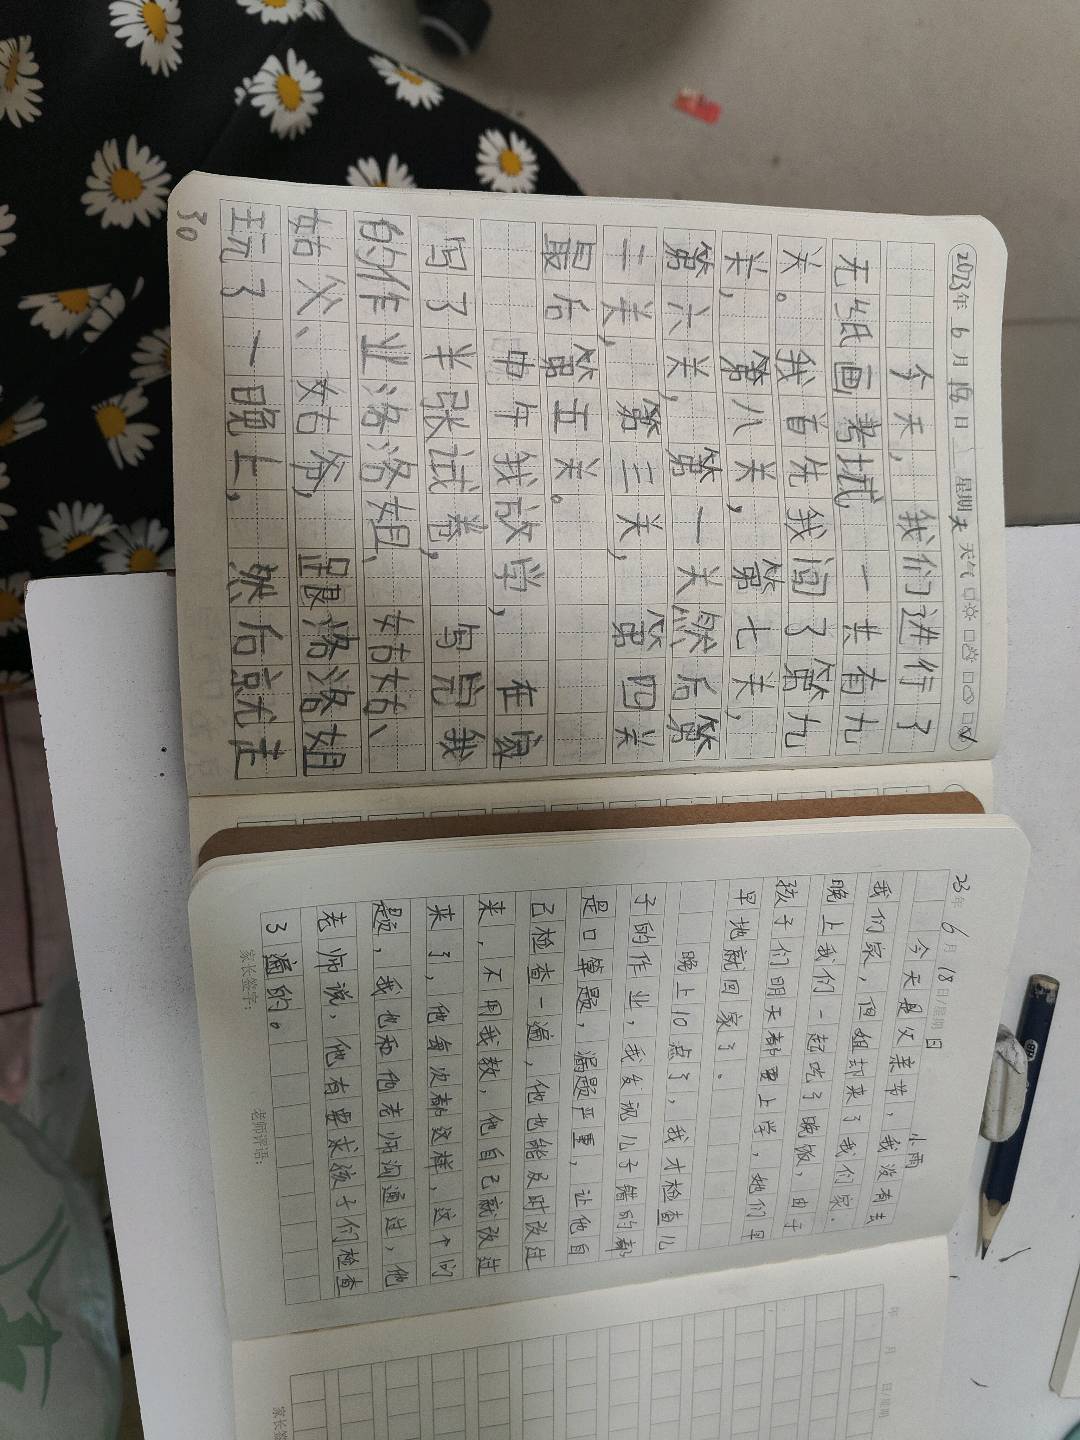 2023年6月18日 星期天 天气
今天，我们进行了
无纸画考试，一共有九
关。我首先我闯了第九
关，第八关，第七关，
第六关，第一关然后第
二关，第三关，第四关
最后第五关。
中午我放学，在家
写了半张试卷，写完我
的作业洛洛姐、姑姑、
姑父、姑爷，跟洛洛姐
玩了一晚上，然后就走
30
23年6月18日/星期日 小雨
今天是父亲节，我没有去
我们家，但姐却来了我们家．
晚上我们一起吃了晚饭，由于
孩子们明天都要上学，她们早
早地就回家了．
晚上10点了，我才检查儿
子的作业，我发现儿子错的都
是口算题，漏题严重，让他自
己检查一遍，他也能及时改过
来，不用我教，他自己就改过
来了，他每次都这样，这个问
题，我也和他老师沟通过，他
老师说，他有要求孩子们检查
3遍的。
家长签字： 老师评语：
年 月 日/星期